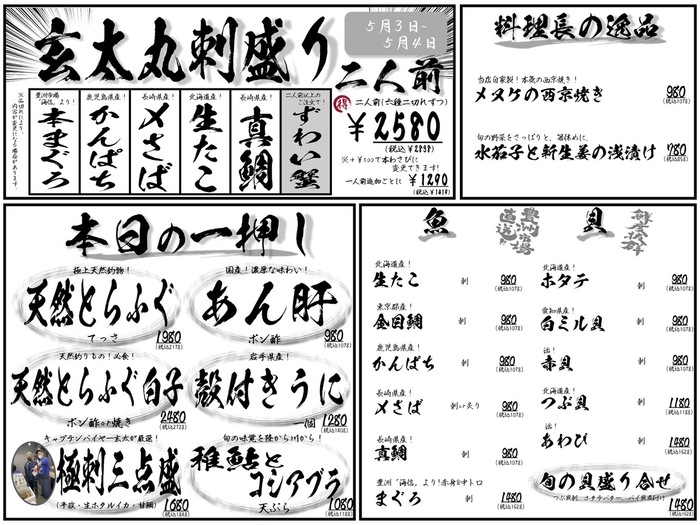 玄太丸刺盛り
5月3日-
5月4日
二人前
得 二人前(六種二切れずつ)
¥2580
(税込¥2838)
※+¥500で本わさびに
変更できます!
一人前追加ごとに ¥1290
(税込¥1419)
※品切れにより、
内容が変更になる場合があります。
豊洲市場
「海信」より!
本まぐろ
鹿児島県産!
かんぱち
長崎県産!
〆さば
北海道産!
生たこ
長崎県産!
真鯛
二人前以上の
ご注文で!
ずわい蟹
料理長の逸品
当店自家製!本気の西京焼き!
メヌケの西京焼き 980
(税込1078)
旬の野菜をさっぱりと、箸休めに、
水茄子と新生姜の浅漬け 780
(税込858)
本日の一押し
極上天然釣物!
天然とらふぐ
てっさ 1980
(税込2178)
国産!濃厚な味わい!
あん肝
ポン酢 980
(税込1078)
天然釣りもの!必食!
天然とらふぐ白子
ポン酢or焼き 2480
(税込2728)
岩手県産!
殻付きうに
一個 1280
(税込1408)
キャプテンバイヤー玄太が厳選!
極刺三点盛
(平政・生ホタルイカ・甘鯛) 1680
(税込1848)
旬の味覚を陸から川から!
稚鮎と
コシアブラ
天ぷら 1080
(税込1188)
魚
豊洲市場
直送!!
北海道産!
生たこ 刺 980
(税込1078)
東京都産!
金目鯛 刺 980
(税込1078)
鹿児島県産!
かんぱち 刺 980
(税込1078)
長崎県産!
〆さば 刺or炙り 980
(税込1078)
長崎県産!
真鯛 刺 980
(税込1078)
豊洲「海信」より!赤身or中トロ
まぐろ 刺 1480
(税込1628)
貝
鮮度抜群
北海道産!
ホタテ 刺 980
(税込1078)
愛知県産!
白ミル貝 刺 980
(税込1078)
活!
赤貝 刺 980
(税込1078)
北海道産!
つぶ貝 刺 1180
(税込1298)
活!
あわび 刺 1480
(税込1628)
旬の貝盛り合せ
つぶ貝刺、ホタテバター、バイ貝煮付け 1480
(税込1628)